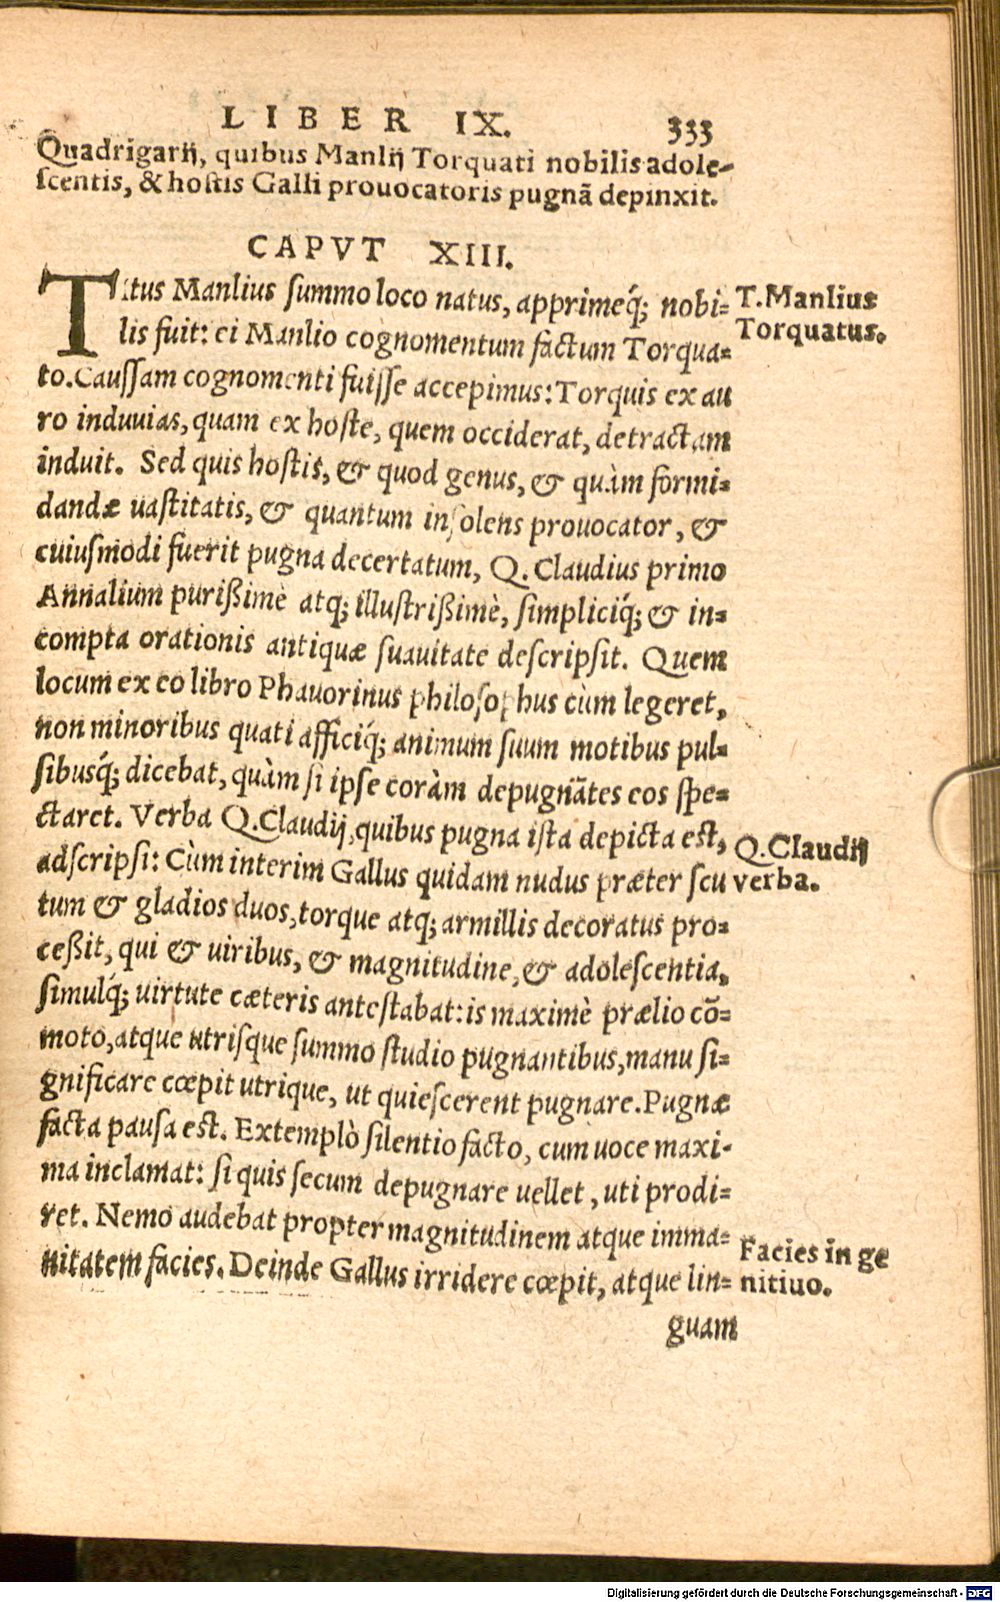 LIBER IX. 333
Quadrigarij, quibus Manlij Torquati nobilis adole-
scentis, & hostis Galli prouocatoris pugnã depinxit.
CAPVT XIII.
Titus Manlius summo loco natus, apprimeq́; nobi-
lis fuit: ei Manlio cognomentum factum Torqua-
to. Caussam cognomenti fuisse accepimus: Torquis ex au
ro induuias, quam ex hoste, quem occiderat, detractam
induit. Sed quis hostis, & quod genus, & quàm formi-
dandæ uastitatis, & quantum insolens prouocator, &
cuiusmodi fuerit pugna decertatum, Q. Claudius primo
Annalium purißimè atq; illustrißimè, simpliciq́; & in-
compta orationis antiquæ suauitate descripsit. Quem
locum ex eo libro Phauorinus philosophus cùm legeret,
non minoribus quati afficiq́; animum suum motibus pul-
sibusq́; dicebat, quàm si ipse coràm depugnãtes eos spe-
ctaret. Verba Q. Claudij, quibus pugna ista depicta est,
adscripsi: Cùm interim Gallus quidam nudus præter scu
tum & gladios duos, torque atq; armillis decoratus pro-
ceßit, qui & uiribus, & magnitudine, & adolescentia,
simulq́; uirtute cæteris antestabat: is maximè prælio cõ-
moto, atque utrisque summo studio pugnantibus, manu si-
gnificare cœpit utrique, ut quiescerent pugnare. Pugnæ
facta pausa est. Extemplò silentio facto, cum uoce maxi-
ma inclamat: si quis secum depugnare uellet, uti prodi-
ret. Nemo audebat propter magnitudinem atque imma-
nitatem facies. Deinde Gallus irridere cœpit, atque lin-
guam
T. Manlius
Torquatus.
Q. Claudij
verba.
Facies in ge
nitiuo.
Digitalisierung gefördert durch die Deutsche Forschungsgemeinschaft - DFG